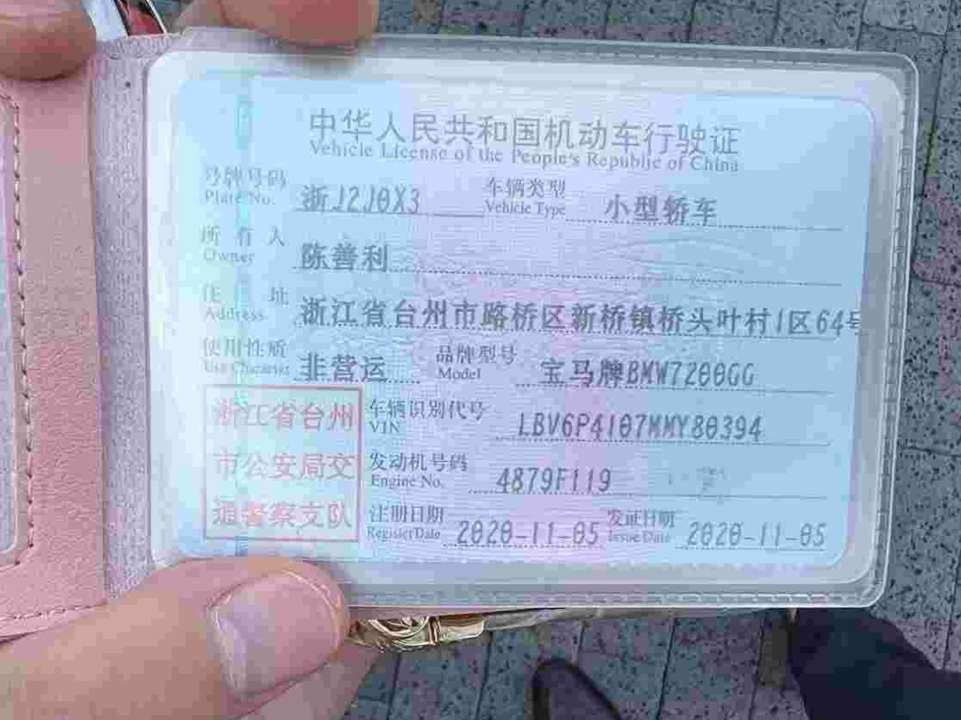 中华人民共和国机动车行驶证
Vehicle License of the People's Republic of China
号牌号码 浙J2J0X3 车辆类型 小型轿车
Plate No. Vehicle Type
所有人 陈善利
Owner
住址 浙江省台州市路桥区新桥镇桥头叶村1区64号
Address
使用性质 非营运 品牌型号 宝马牌BMW7200GG
Use Character Model
浙江省台州 车辆识别代号 LBV6P4107MMY80394
VIN
市公安局交 发动机号码 4879F119
Engine No.
通警察支队 注册日期 2020-11-05 发证日期 2020-11-05
Register Date Issue Date